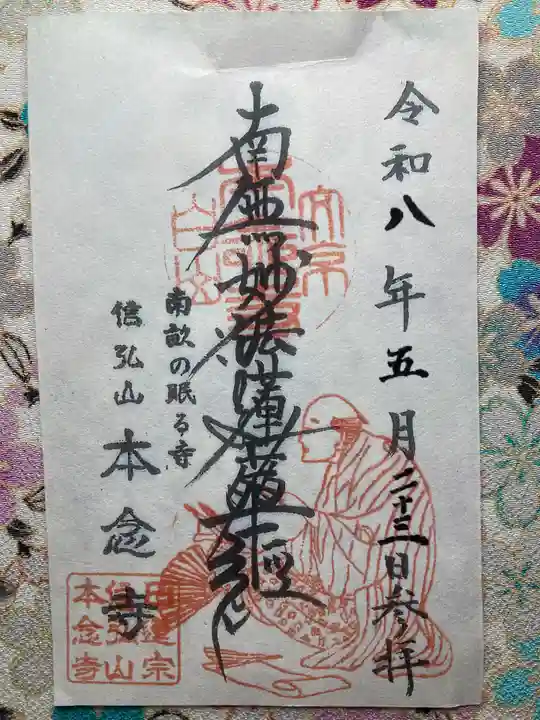 令和八年五月二十三日参拝
南無妙法蓮華経
南畝の眠る寺
信弘山
本念寺
文京
白山
日蓮宗
信弘山
本念寺